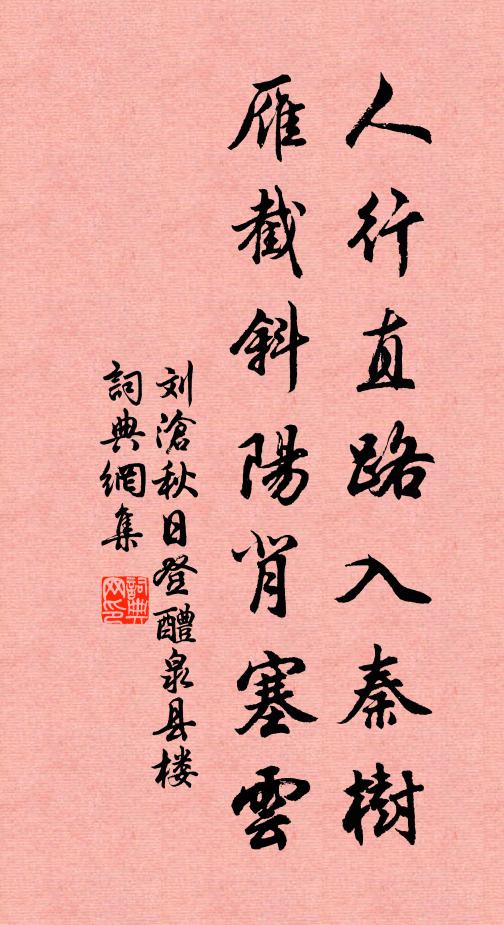 人行直路入秦樹
雁截斜陽背塞雲
刘滄秋日登醴泉县楼
詞典網集
詞典
网印